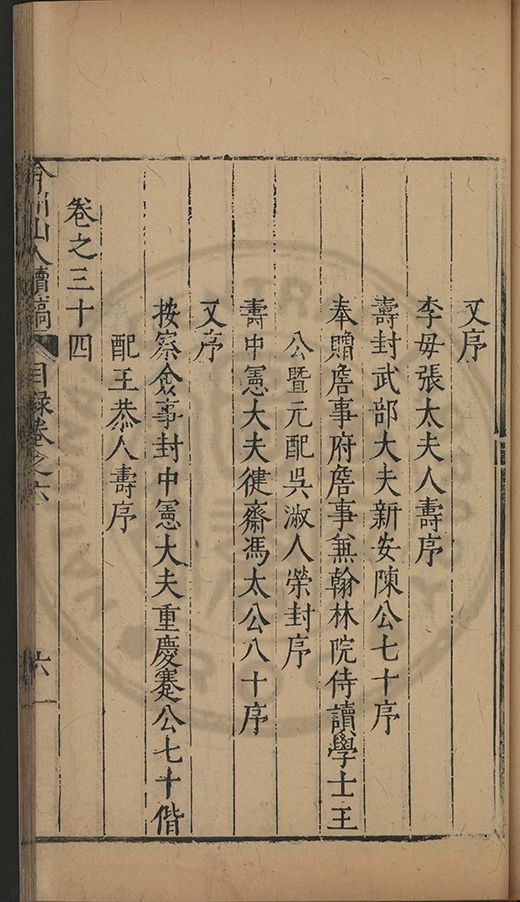 又序
李母張太夫人壽序
壽封武部大夫新安陳公七十序
奉贈詹事府詹事兼翰林院侍讀學士王
公暨元配吳淑人榮封序
壽中憲大夫健齋馮太公八十序
又序
按察僉事封中憲大夫重慶蹇公七十偕
配王恭人壽序
卷之三十四
弇州山人續稿 目録卷之六 六